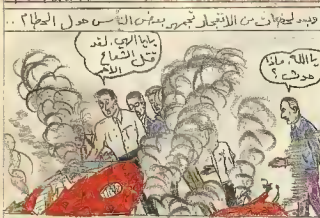 وبعد لحظات من الانفجار تجمهر بعض الناس حول الحطام ..
يا إلهي، لقد
قتل الشعاع
الأحمر
يا الله، ماذا
حدث؟